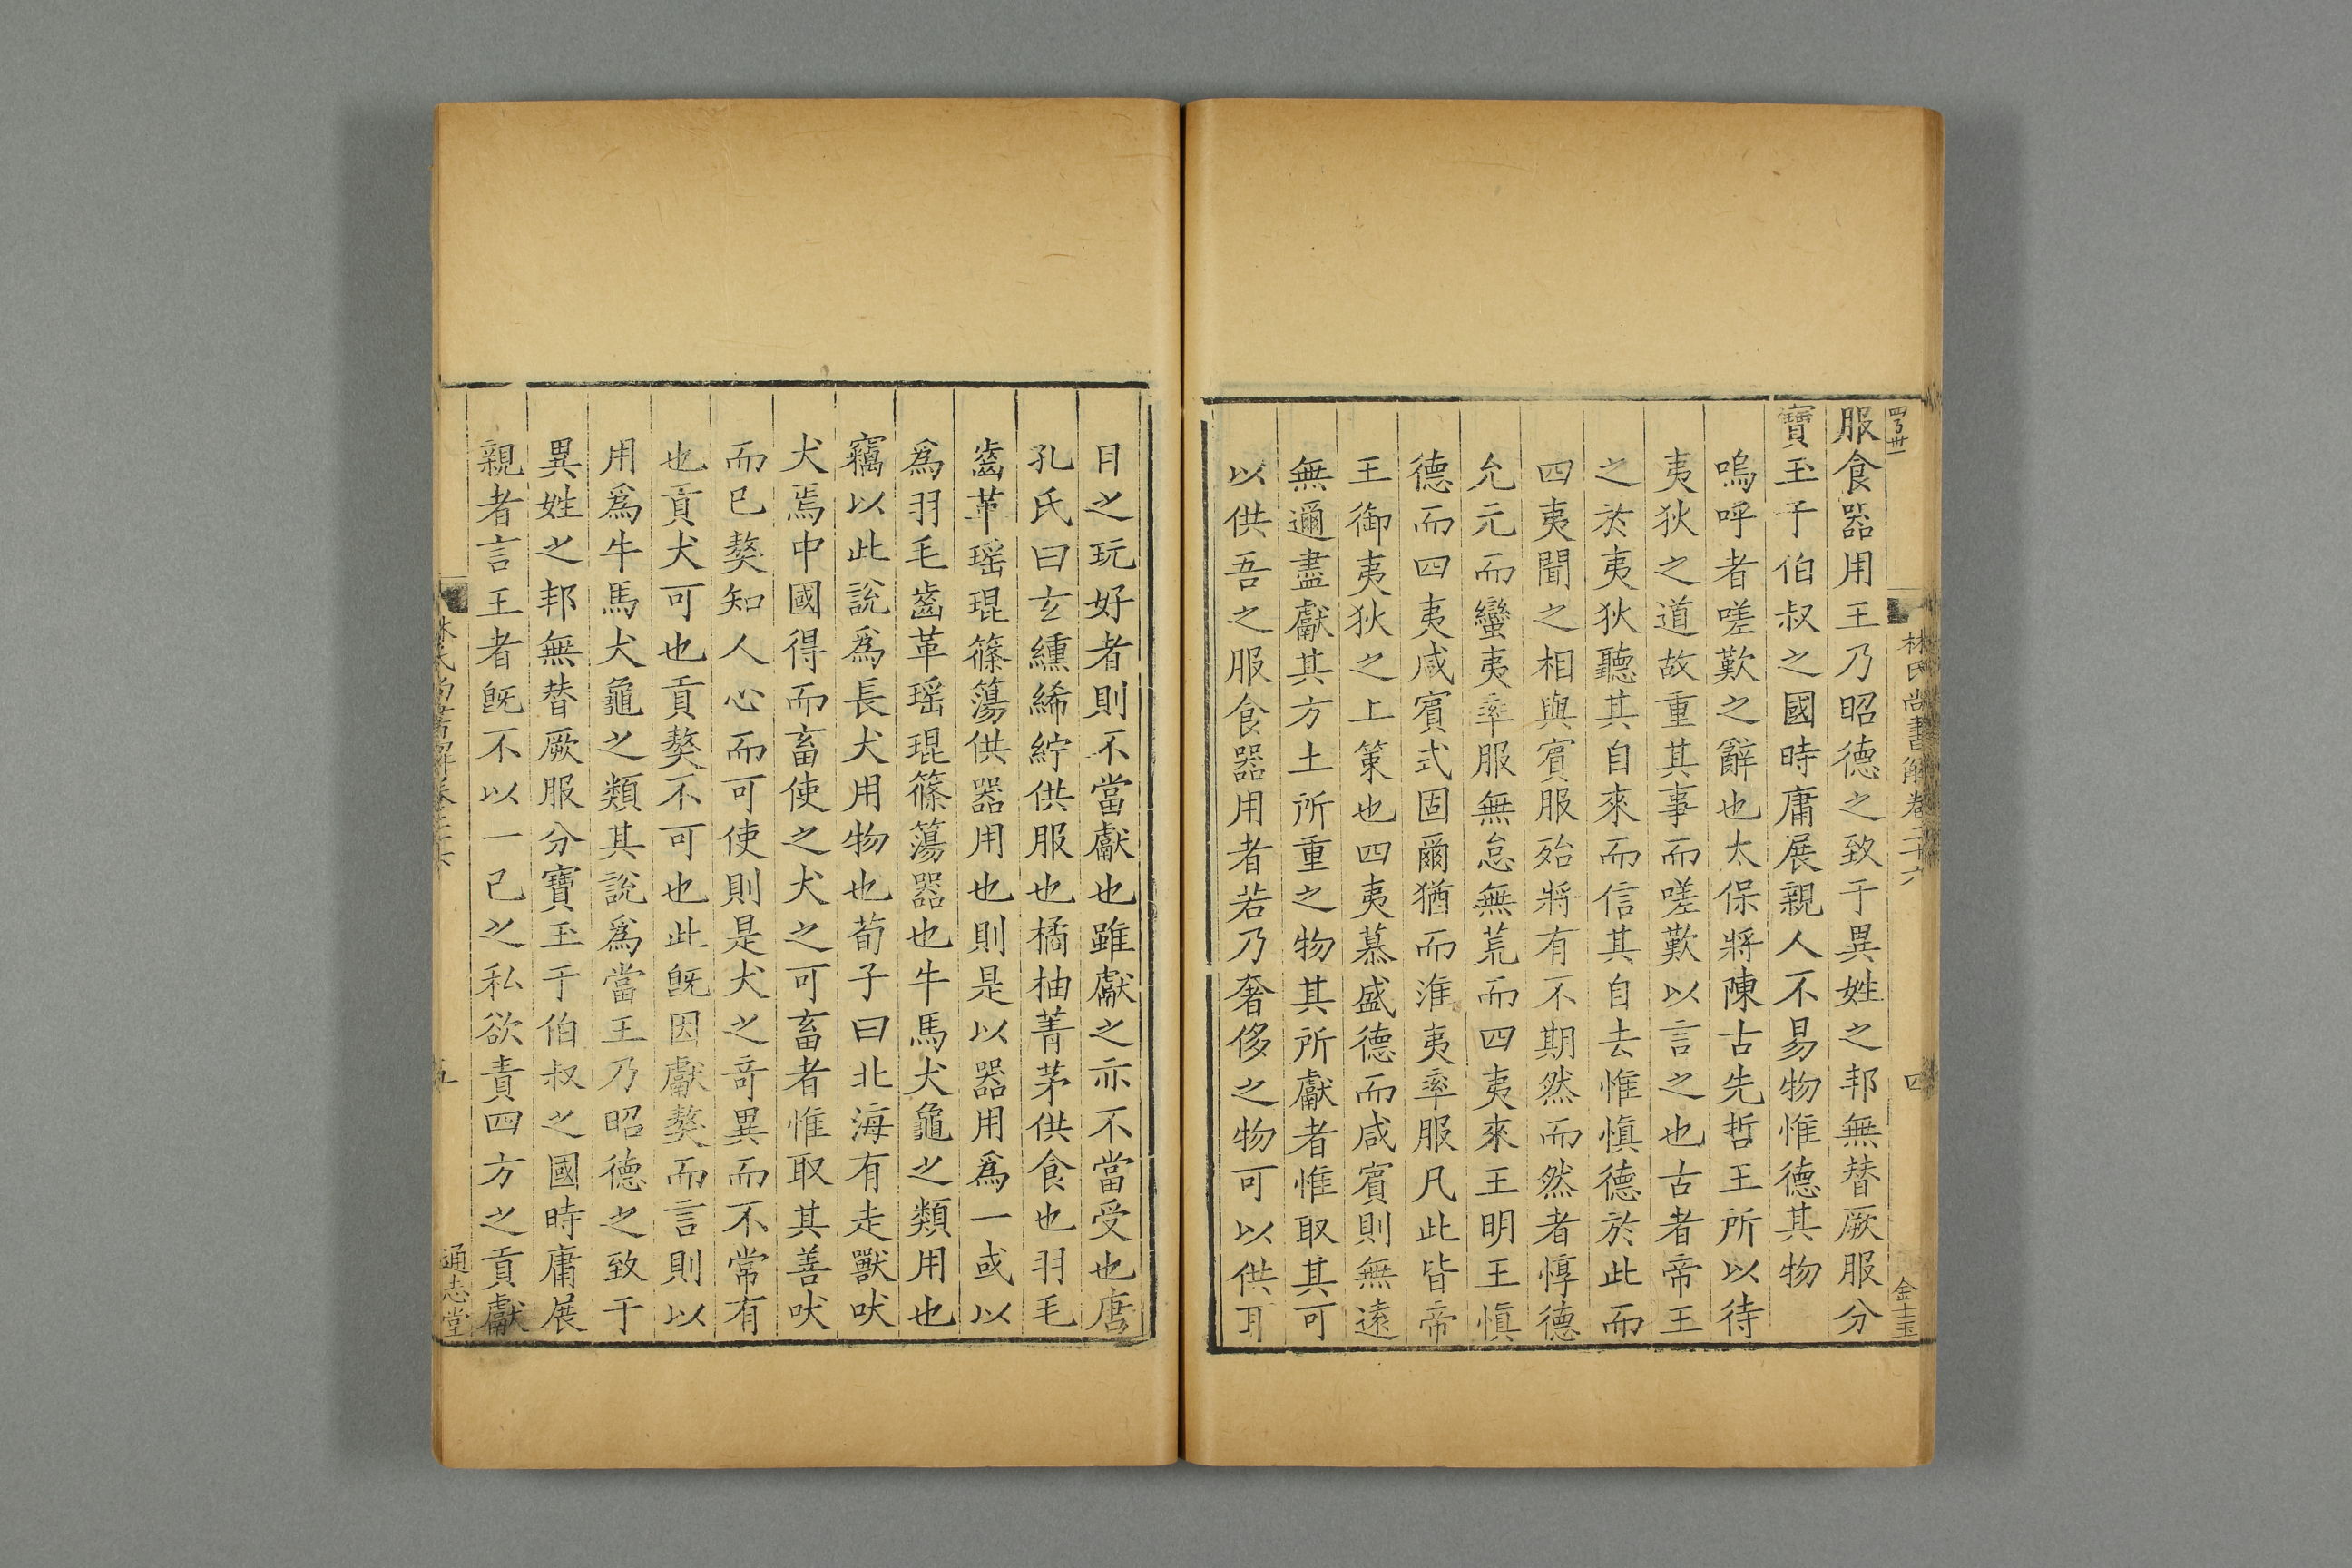 服食器用王乃昭德之致于異姓之邦無替厥服分
寶玉于伯叔之國時庸展親人不易物惟德其物
嗚呼者嗟歎之辭也太保將陳古先哲王所以待
夷狄之道故重其事而嗟歎以言之也古者帝王
之於夷狄聽其自來而信其自去惟慎德於此而
四夷聞之相與賓服殆將有不期然而然者惇德
允元而蠻夷率服無怠無荒而四夷來王明王慎
德而四夷咸賓式固爾猶而淮夷率服凡此皆帝
王御夷狄之上策也四夷慕盛德而咸賓則無遠
無邇盡獻其方土所重之物其所獻者惟取其可
以供吾之服食器用者若乃奢侈之物可以供耳
林氏尚書解卷二十六
四
金士玉
日之玩好者則不當獻也雖獻之亦不當受也唐
孔氏曰玄纁絺紵供服也橘柚菁茅供食也羽毛
齒革瑶琨篠簜供器用也則是以器用爲一或以
爲羽毛齒革瑶琨篠簜器也牛馬犬龜之類用也
竊以此說爲長犬用物也荀子曰北海有走獸吠
犬焉中國得而畜使之犬之可畜者惟取其善吠
而已獒知人心而可使則是犬之奇異而不常有
也貢犬可也貢獒不可也此旣因獻獒而言則以
用爲牛馬犬龜之類其說爲當王乃昭德之致于
異姓之邦無替厥服分寶玉于伯叔之國時庸展
親者言王者旣不以一己之私欲責四方之貢獻
五
通志堂